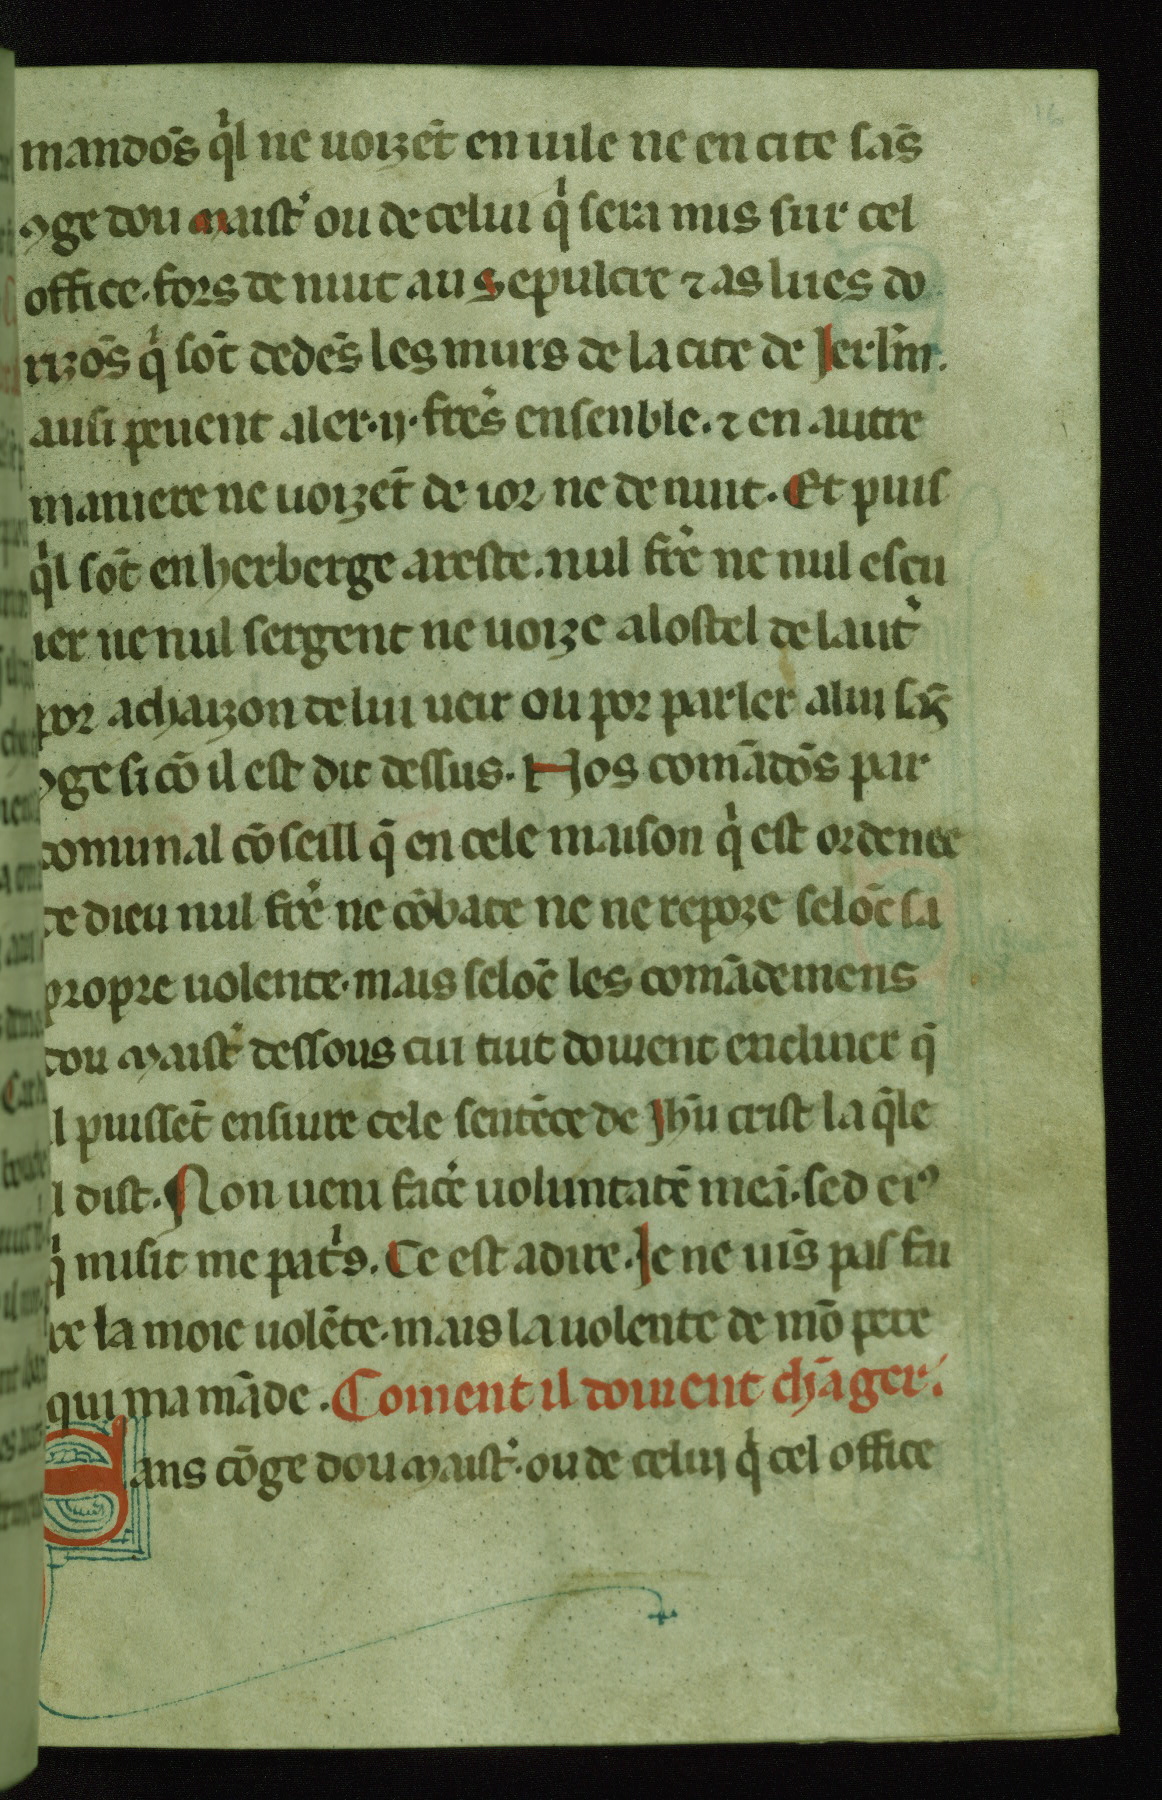 mandõs q̉l ne uoizẽt en uile ne en cite sãs
ꝯge dou maist̉ ou de celui q̉ sera mis sur cel
office. fors de nuit au sepulcre ⁊ as lues do
rizõs q̉ sõt dedẽs les murs de la cite de Jerl̃m.
ausi peuent aler .ij. fre᷒s ensenble. ⁊ en autre
maniere ne uoizẽt de ior ne de nuit. Et puis
q̉l sõt en herberge areste. nul fre᷒ ne nul escu
ier ne nul sergent ne uoize a lostel de laut̉
por achaizon de lui ueir ou por parler a lui sãs
ꝯge si cõ il est dit dessus. Nos comãdõs par
comunal cõseill q̃ en cele maison q̉ est ordenee
de dieu nul fre᷒ ne cõbate ne ne repoze selõc sa
propre uolente. mais selõc les comãdemens
dou maist̉ dessous cui tuit doiuent encliner q̃
il puissẽt ensiure cele sentẽce de Jhũ crist la q̃le
il dist. Non ueni face᷒ uoluntatẽ meã. sed eiꝰ
q̉ misit me pat̉s. Ce est a dire. Je ne uĩs pas fai
re la moie uolẽte. mais la uolente de mõ pere
qui ma mãde. Coment il doiuent chãger.
Sans cõge dou maist̉. ou de celui q̉ cel office